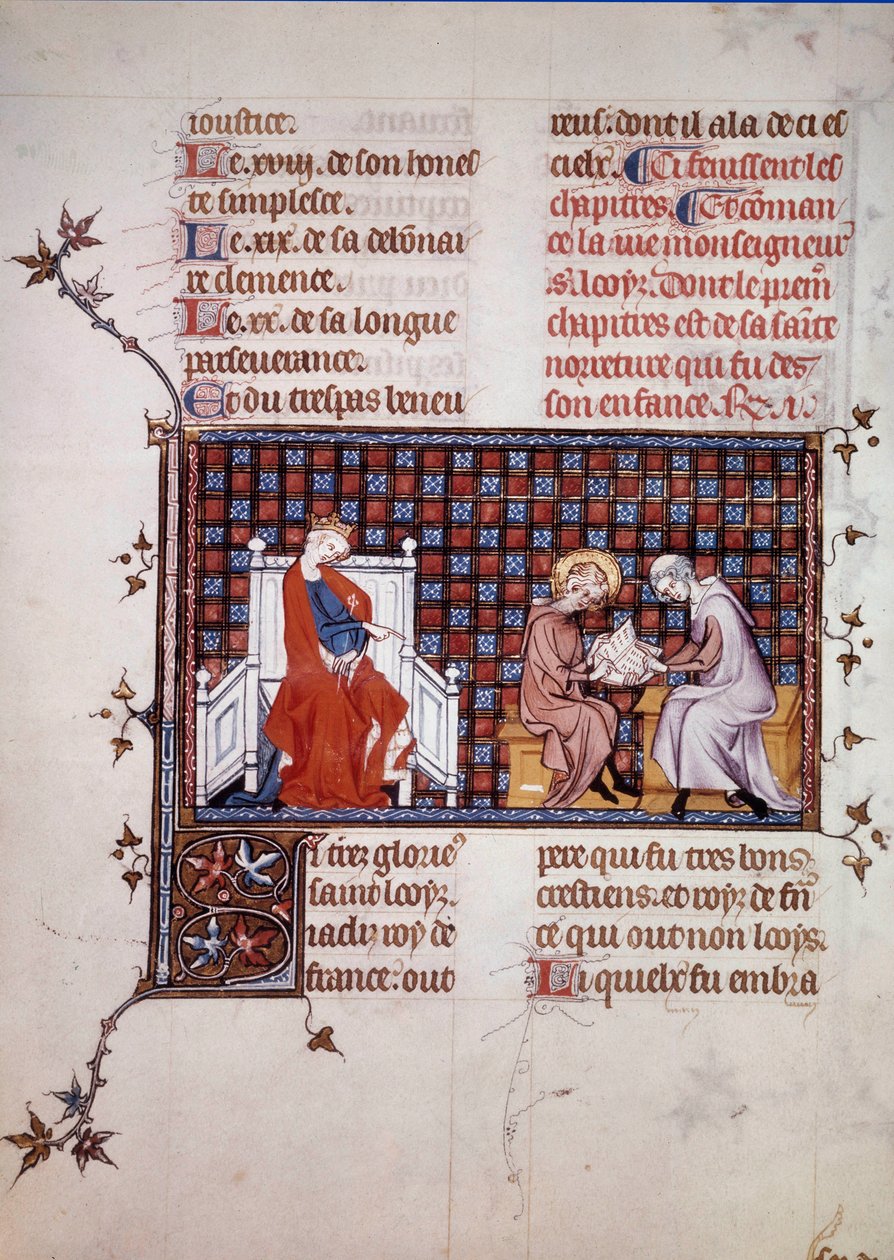 ioustice.
Le .xviij. de son hones
te simplesce.
Le .xix. de sa debōnai
re clemence.
Le .xx. de sa longue
perseuerance.
Et du trespas beneu
reus. dont il ala de ci es
cielx. Ci fenissent les
chapitres. Et cōman
ce la uie monseigneur
S. looyz. Dont le prem̄
chapitres est de sa saīte
norreture qui fu des
son enfance. R. i.
Li trez glorieꝰ
saint looyz.
iadiz roy de
france. out
pere qui fu tres bons
crestiens. et roys de fn̄
ce qui out non looys.
Li quelx fu embra